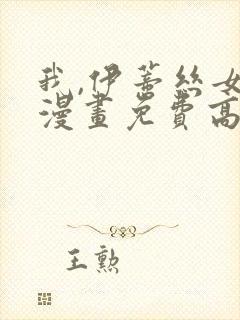 我,伊蒂絲女
漫畫免費高
王勲